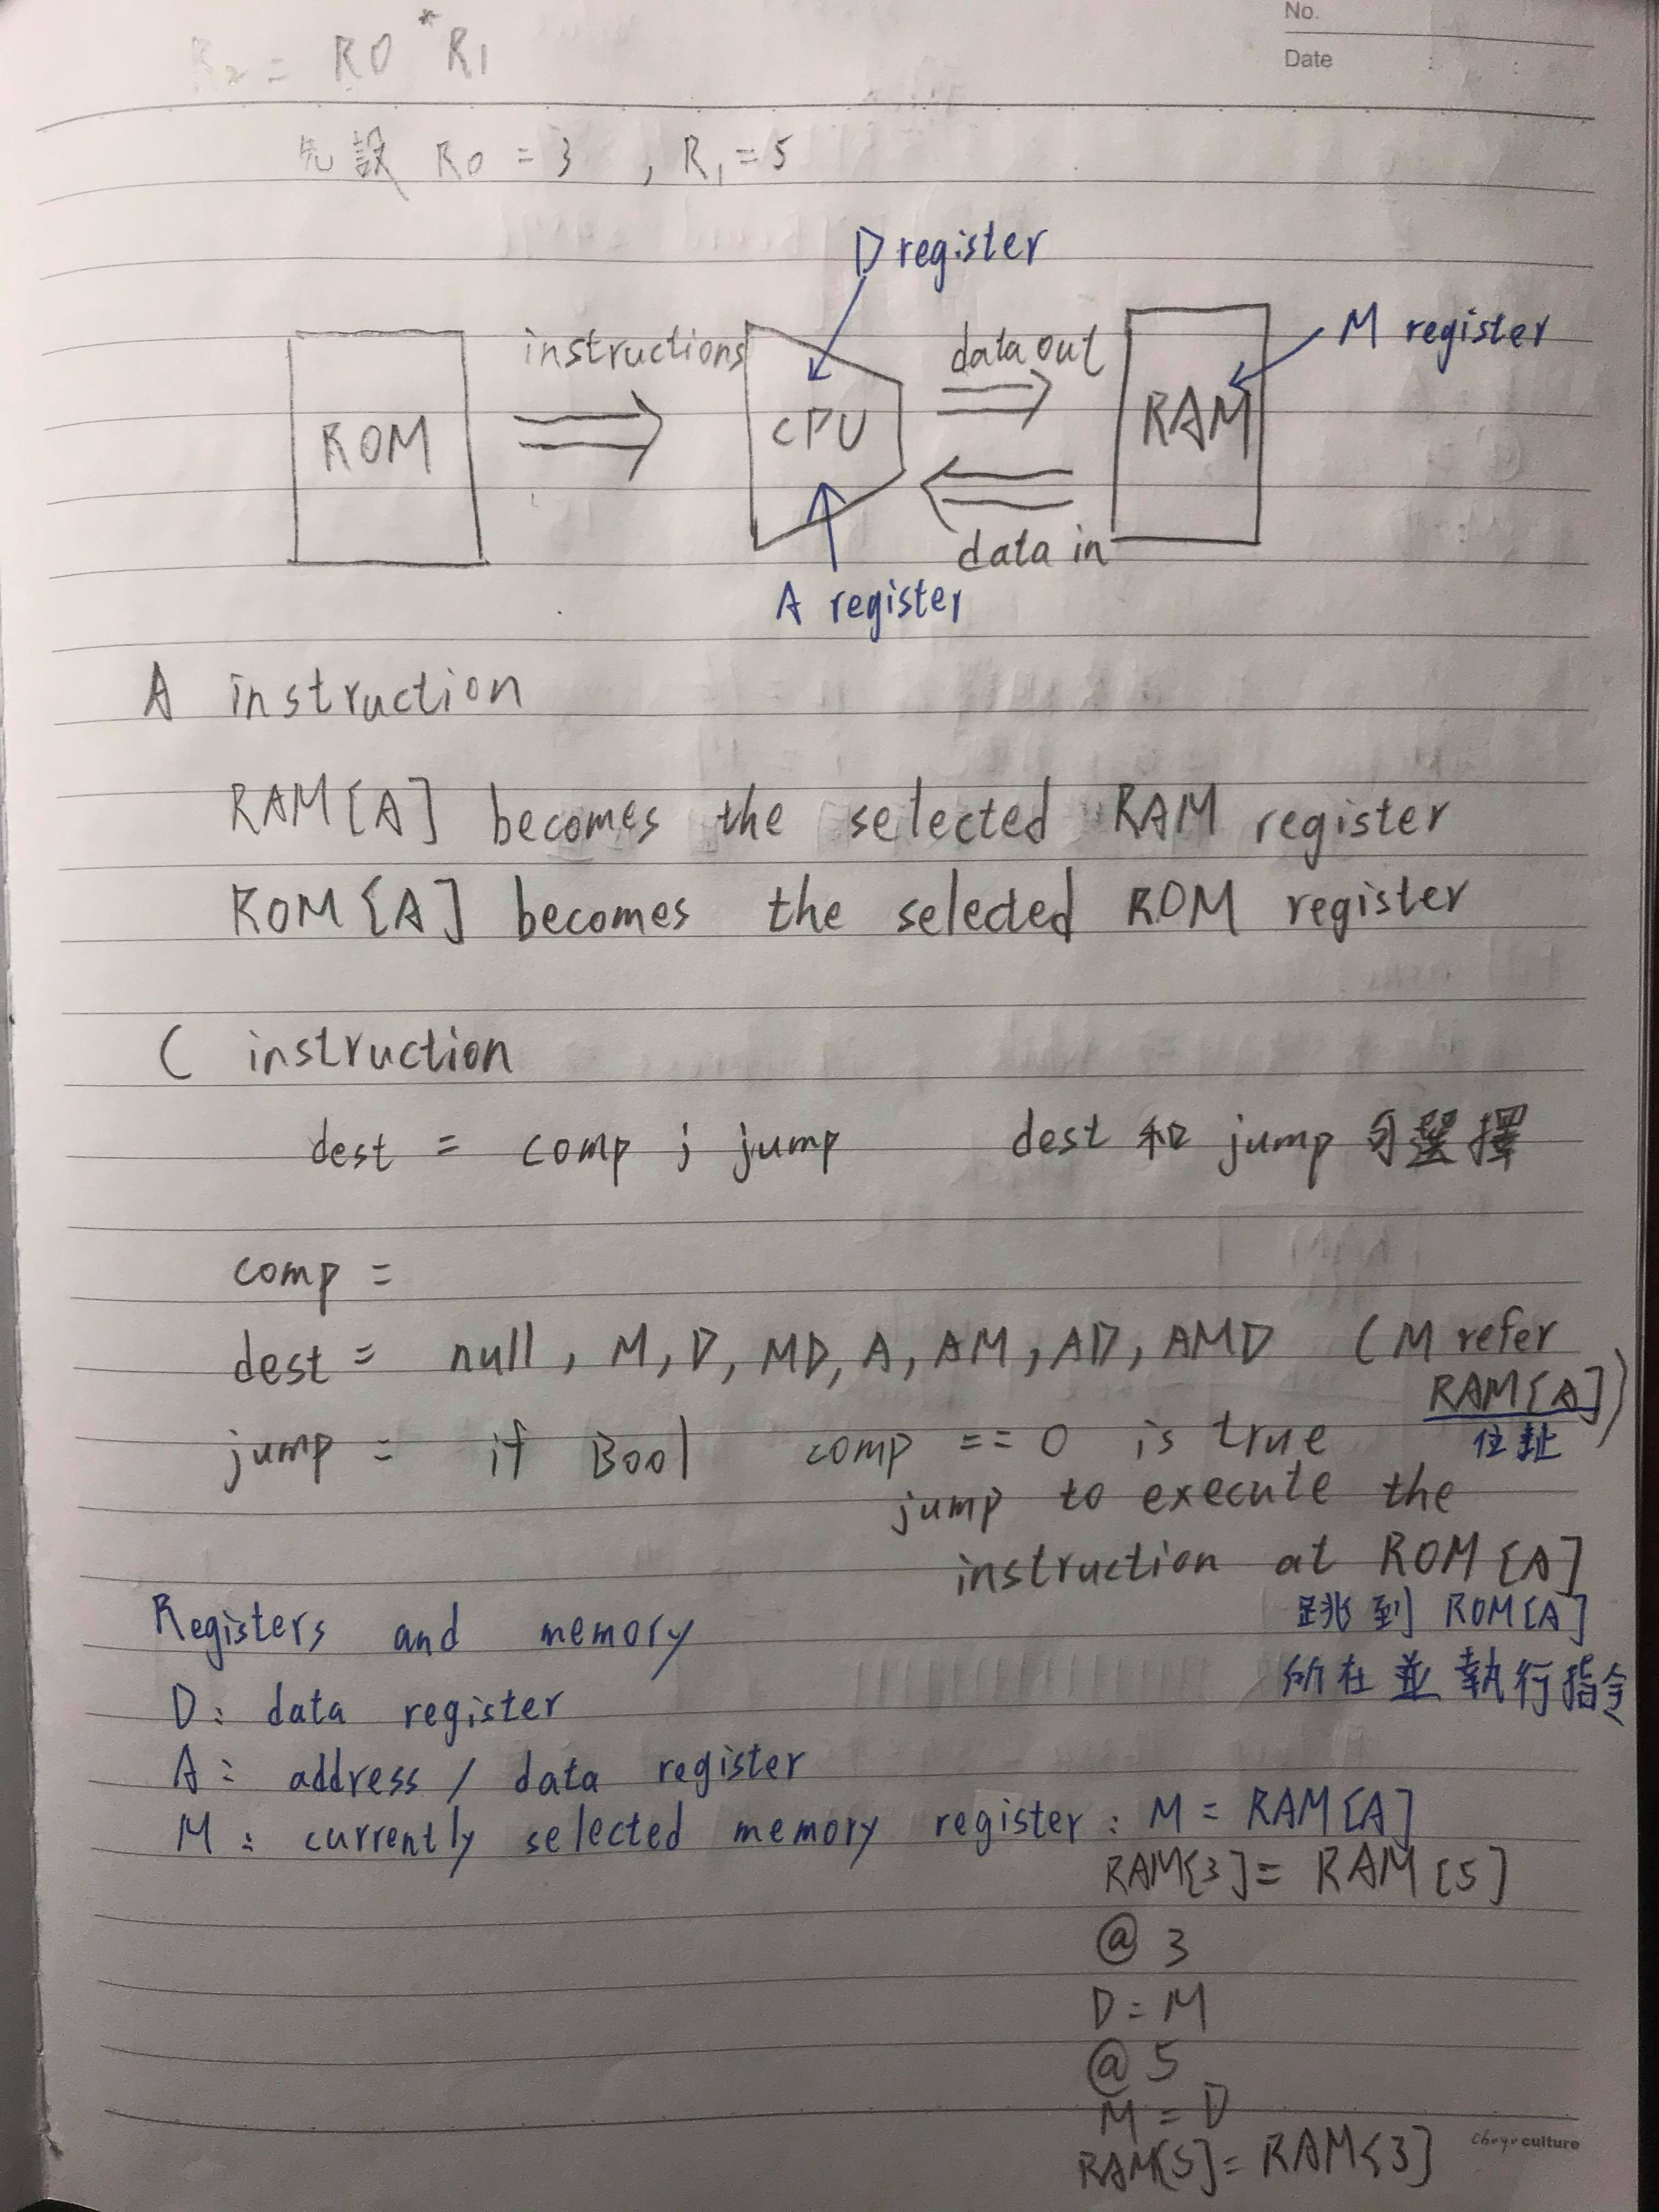 No.
Date : :
R2 = R0 * R1
先設 R0 = 3 , R1 = 5
D register
M register
instructions
data out
ROM
CPU
RAM
data in
A register
A instruction
RAM[A] becomes the selected RAM register
ROM[A] becomes the selected ROM register
C instruction
dest = comp ; jump dest 和 jump 可選擇
comp =
dest = null , M, D, MD, A, AM, AD, AMD (M refer
RAM[A])
住址
jump = if Bool comp == 0 is true
jump to execute the
instruction at ROM[A]
跳到 ROM[A]
所在並執行指令
Registers and memory
D : data register
A : address / data register
M : currently selected memory register : M = RAM[A]
RAM[3] = RAM[5]
@ 3
D = M
@ 5
M = D
RAM[5] = RAM[3]
culture